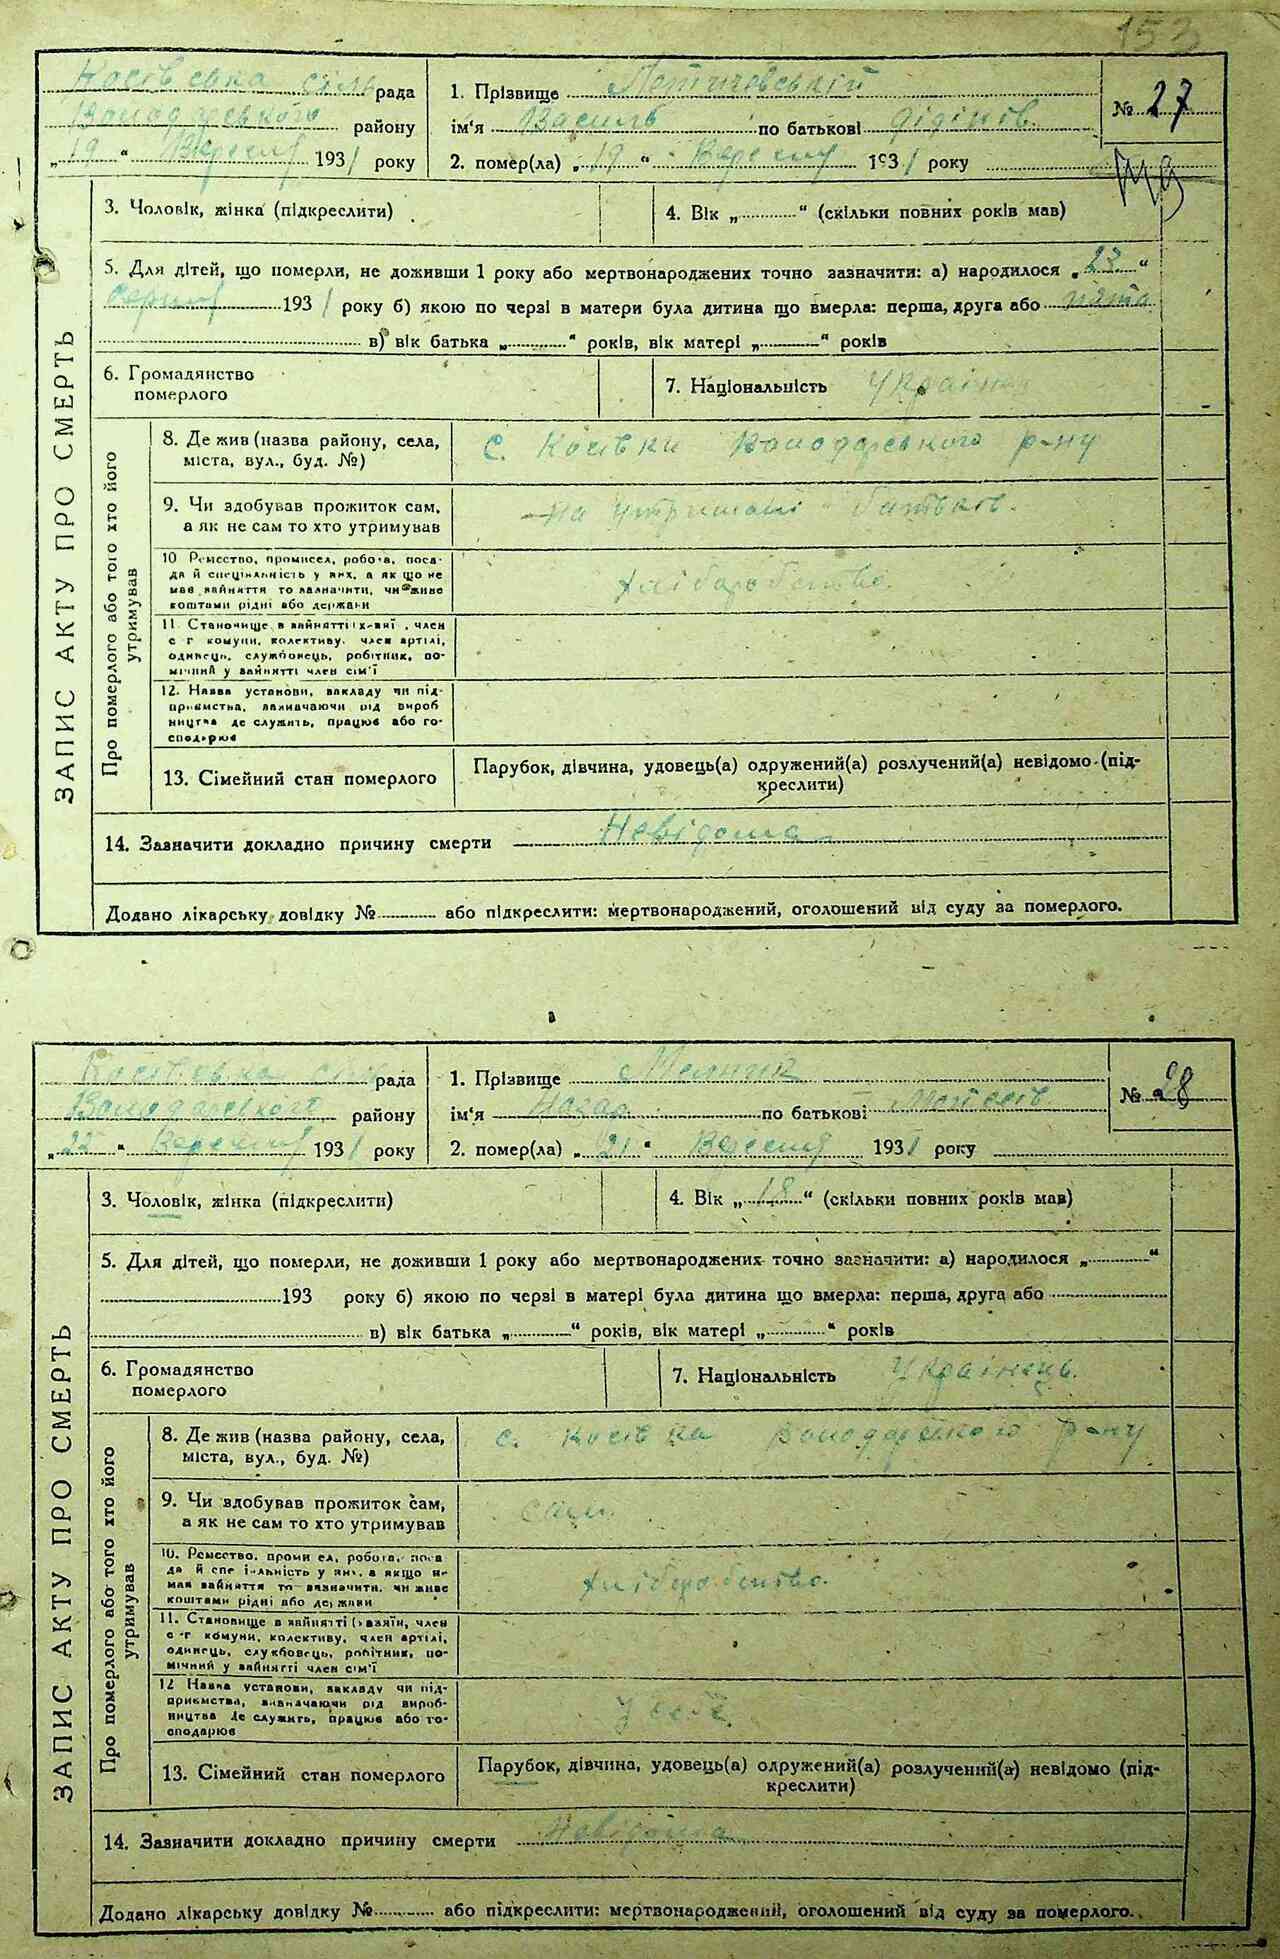 153
Косівська сіль рада
Володарського району
„19“ Вересня 1931 року
1. Прізвище Летичевський
ім‘я Василь по батькові
2. помер(ла) „19“ Вересня 1931 року
№ 27
3. Чоловік, жінка (підкреслити)
4. Вік „ “ (скільки повних років мав)
5. Для дітей, що померли, не доживши 1 року або мертвонароджених точно зазначити: а) народилося „23“
серпня 1931 року б) якою по черзі в матери була дитина що вмерла: перша, друга або пята
в) вік батька „ “ років, вік матері „ “ років
6. Громадянство
померлого
7. Національність Україн
ЗАПИС АКТУ ПРО СМЕРТЬ
Про померлого або того хто його
утримував
8. Де жив (назва району, села,
міста, вул., буд. №)
с. Косівки Володарського р-ну
9. Чи здобував прожиток сам,
а як не сам то хто утримував
на утриманні батьків.
10 Ремество, промисел, робота, поса-
да й спеціальність у них, а як що не
мав зайняття то зазначити, чи живе
коштами рідні або держави
хліборобство
11. Становище в зайнятті (хазяї, член
с г комуни, колективу, член артілі,
одинець, службовець, робітник, по-
мічний у зайнятті член сім‘ї
12. Назва установи, закладу чи під-
приємства, зазначаючи від вироб
ництва де служить, працює або го-
сподарює
13. Сімейний стан померлого
Парубок, дівчина, удовець(а) одружений(а) розлучений(а) невідомо (під-
креслити)
14. Зазначити докладно причину смерти Невідома
Додано лікарську довідку № або підкреслити: мертвонароджений, оголошений від суду за померлого.
Косівська сіль рада
Володарського району
„22“ Вересня 1931 року
1. Прізвище Мельник
ім‘я Назар по батькові
2. помер(ла) „21“ Вересня 1931 року
№ 28
3. Чоловік, жінка (підкреслити)
4. Вік „18“ (скільки повних років мав)
5. Для дітей, що померли, не доживши 1 року або мертвонароджених точно зазначити: а) народилося „ “
193 року б) якою по черзі в матері була дитина що вмерла: перша, друга або
в) вік батька „ “ років, вік матері „ “ років
6. Громадянство
померлого
7. Національність Українець.
ЗАПИС АКТУ ПРО СМЕРТЬ
Про померлого або того хто його
утримував
8. Де жив (назва району, села,
міста, вул., буд. №)
с. Косівка Володарського р-ну
9. Чи здобував прожиток сам,
а як не сам то хто утримував
сам.
10. Ремество, проми ел, робота, поса
да й спеціальність у них, а якщо н-
мав зайняття то зазначити, чи живе
коштами рідні або держави
хліборобство.
11. Становище в зайнятті (хазяїн, член
с-г комуни, колективу, член артілі,
одинець, службовець, робітник, по-
мічний у зайнятті член сім‘ї
12 Назва установи, закладу чи під-
приємства, зазначаючи від вироб-
ництва де служить, працює або го-
сподарює
у себе.
13. Сімейний стан померлого
Парубок, дівчина, удовець(а) одружений(а) розлучений(а) невідомо (під-
креслити)
14. Зазначити докладно причину смерти Невідома
Додано лікарську довідку № або підкреслити: мертвонароджений, оголошений від суду за померлого.